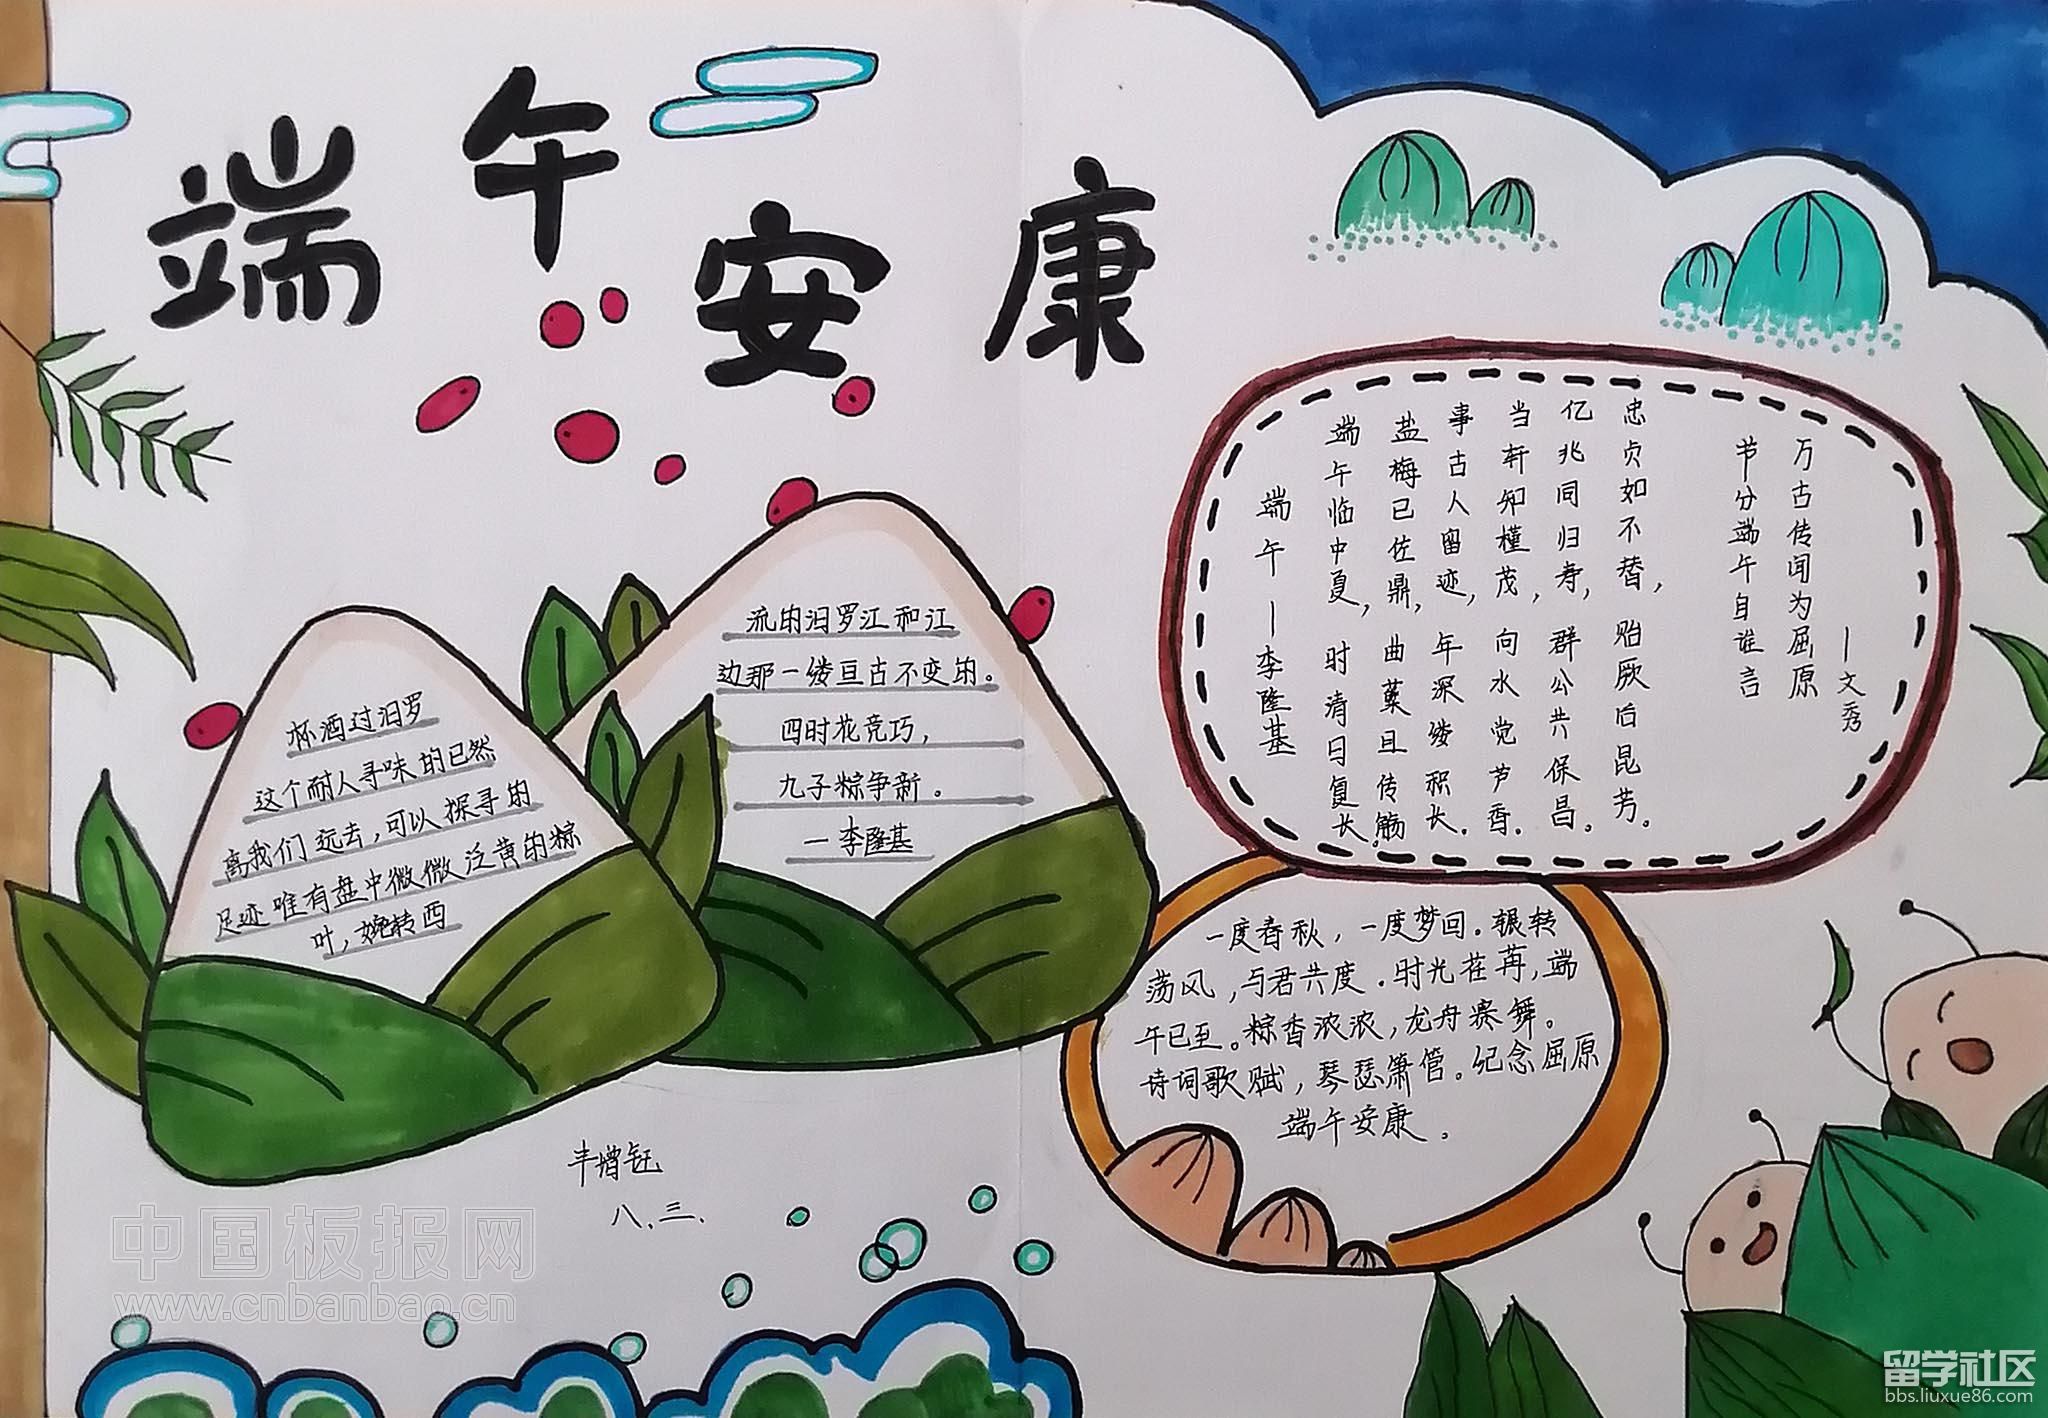 端午安康
杯酒过汨罗
这个耐人寻味的已然
离我们远去，可以探寻的
足迹唯有盘中微微泛黄的粽
叶，婉转西
流的汨罗江和江
边那一缕亘古不变的。
四时花竞巧，
九子粽争新。
一李隆基
端午一李隆基
端午临中夏，时清日复长。
盐梅已佐鼎，曲蘖且传觞。
事古人留迹，年深缕积长。
当轩知槿茂，向水觉芦香。
亿兆同归寿，群公共保昌。
忠贞如不替，贻厥后昆芳。
节分端午自谁言
万古传闻为屈原
一文秀
一度春秋，一度梦回。辗转
荡风，与君共度。时光荏苒，端
午已至。粽香浓浓，龙舟赛舞。
诗词歌赋，琴瑟箫管。纪念屈原
端午安康。
丰增钰
八、三、
中国板报网
www.cnbanbao.cn
留学社区
bbs.liuxue86.com